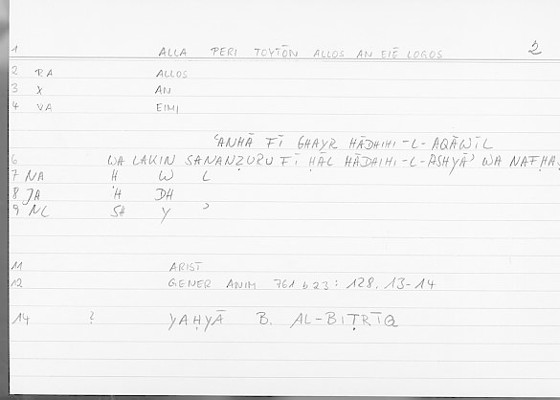 1 ALLA PERI TOYTŌN ALLOS AN EIĒ LOGOS 2
2 RA ALLOS
3 X AN
4 VA EIMI
ʿANHĀ FĪ GHAYR HĀDHIHI-L-AQĀWĪL
6 WA LAKIN SANANẒURU FĪ ḤĀL HĀDHIHI-L-ASHYĀʾ WA NAFḤA
7 NA Ḥ W L
8 JA H DH
9 NL SH Y ʾ
11 ARIST
12 GENER ANIM 761 b 23: 128. 13-14
14 ? YAḤYĀ B. AL-BIṬRĪQ